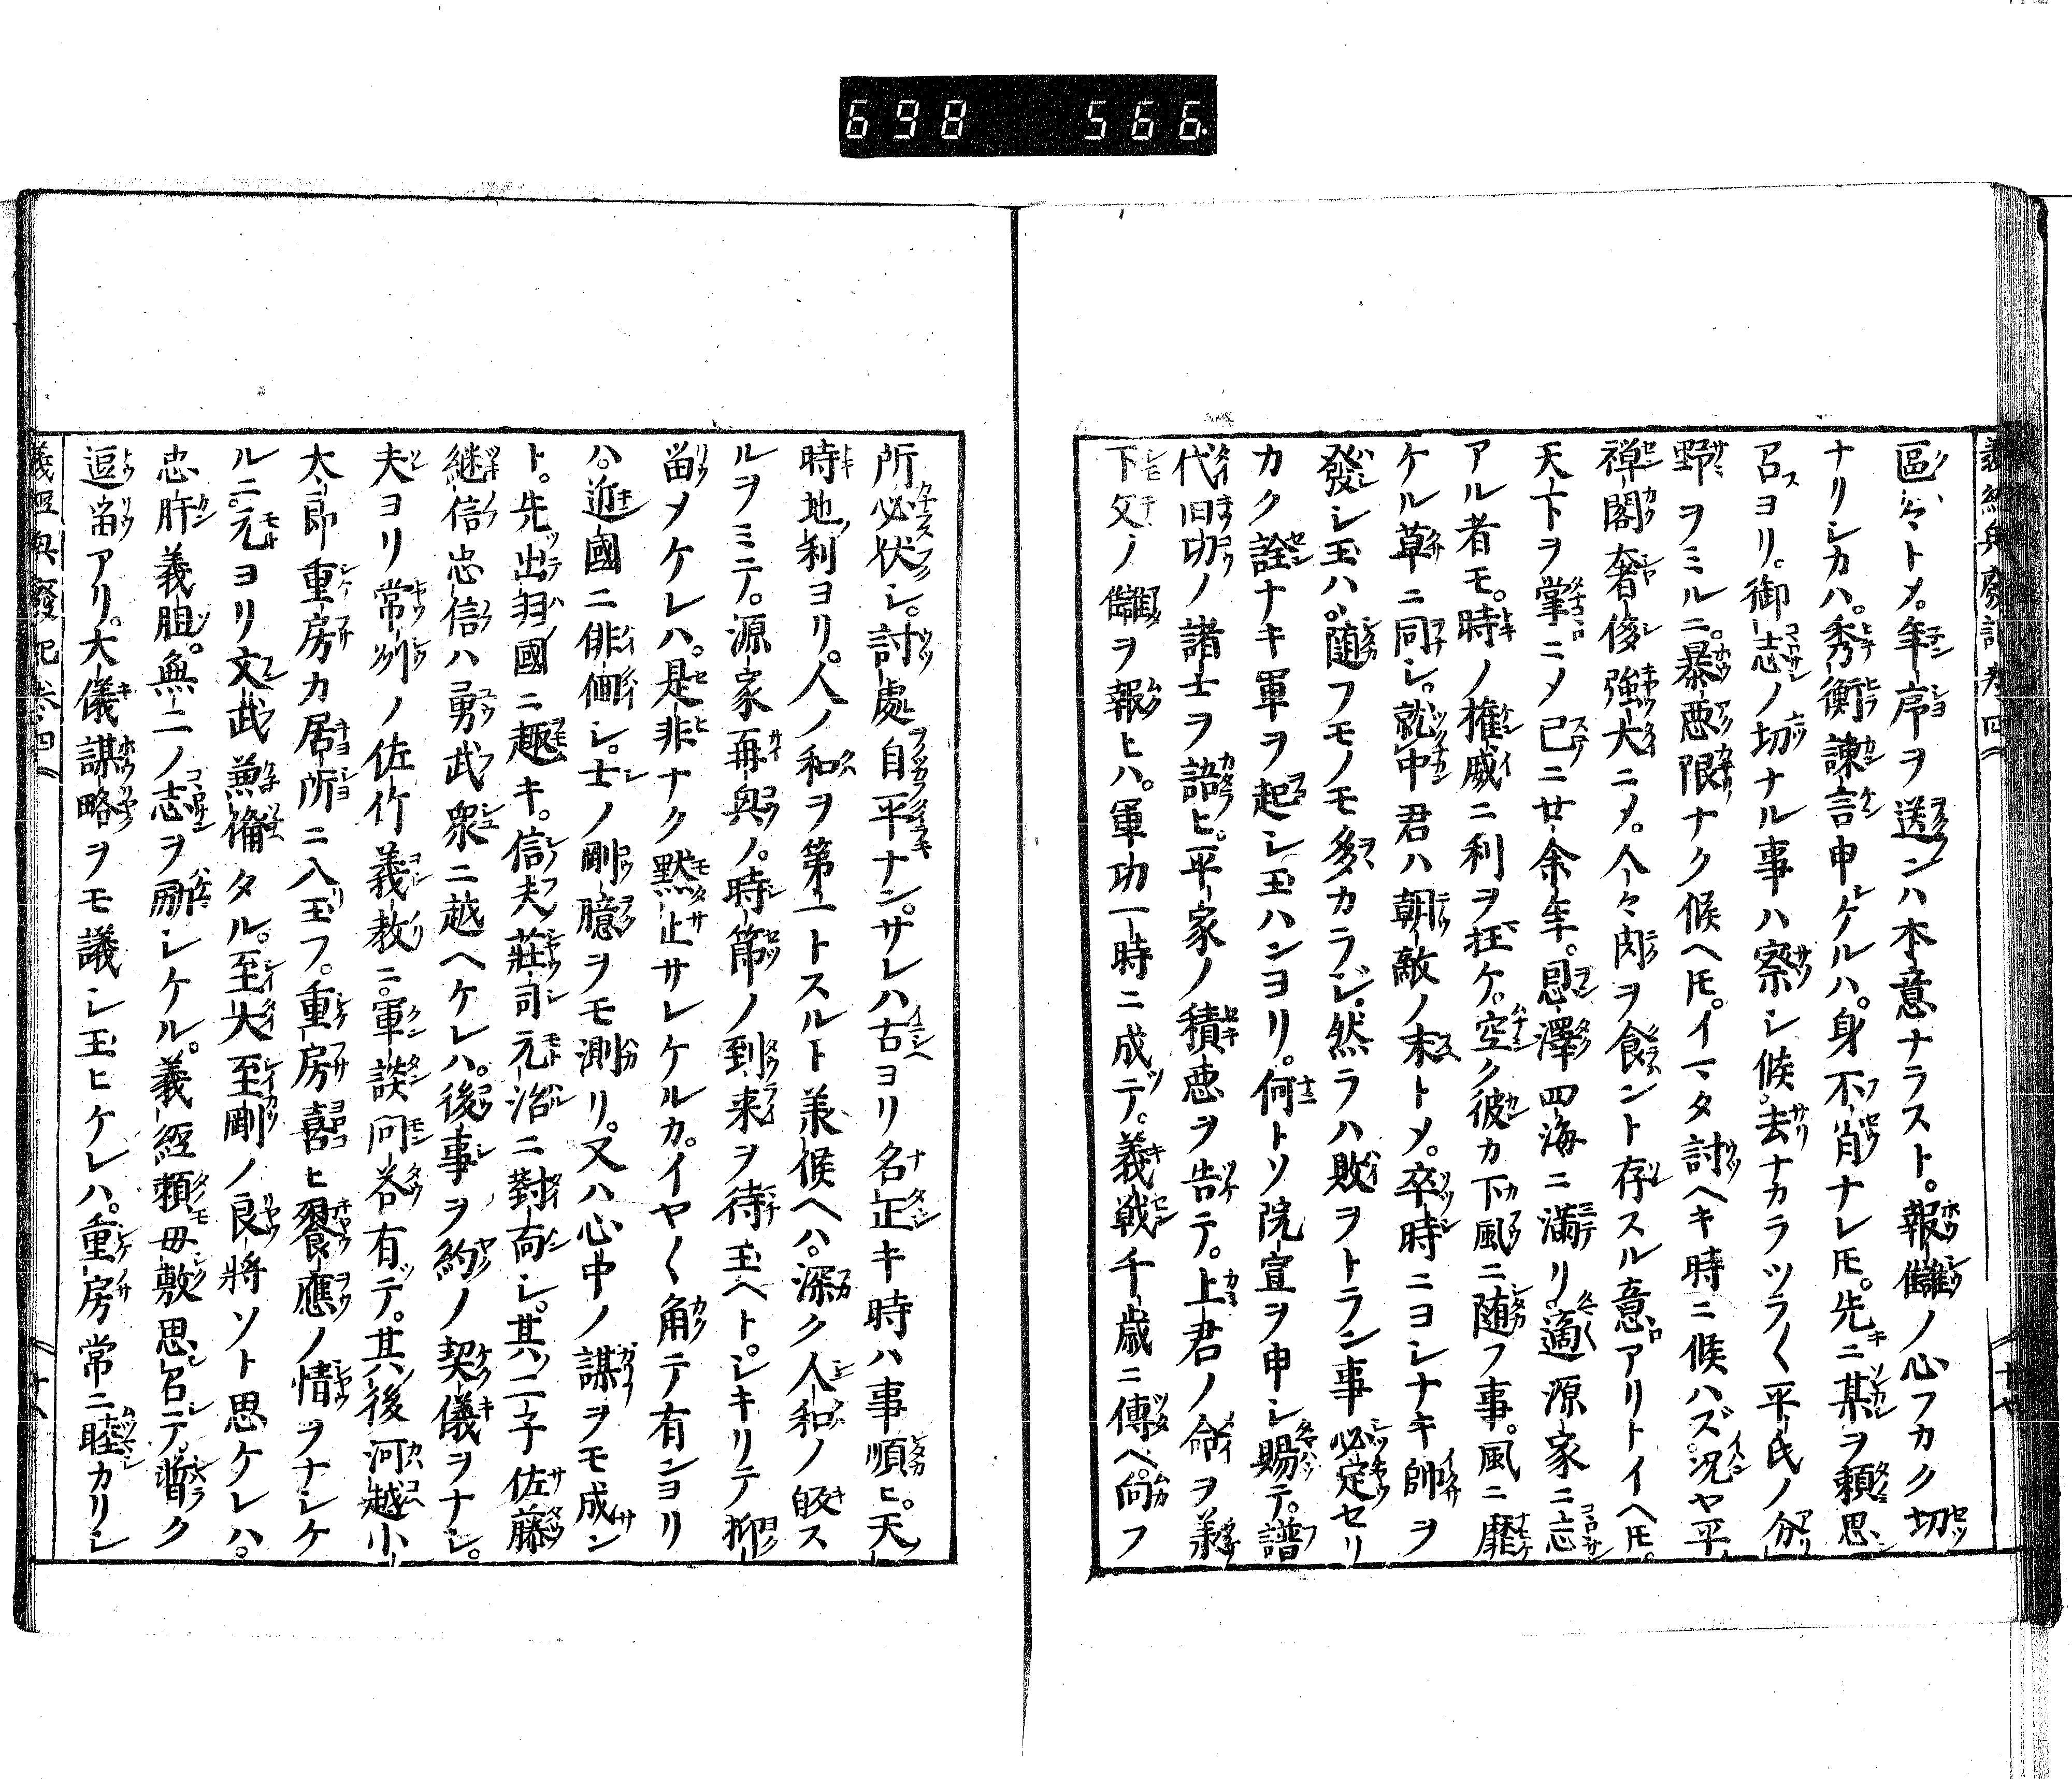 698 566
區々トメ。年序ヲ送ンハ本意ナラスト。報讎ノ心フカク切
ナリシカハ。秀衡諫言申ケルハ。身不肖ナレ𪜈。先ニ某ヲ頼思
召ヨリ。御志ノ切ナル事ハ察シ候。去ナカラツラ〱平氏ノ分
野ヲミルニ。暴悪限ナク候ヘ𪜈。イマタ討ヘキ時ニ候ハズ。況ヤ平
禅閤奢侈強大ニメ。人々肉ヲ食ント存スル意アリトイヘ𪜈。
天下ヲ掌ニメ已ニ廿余年。恩澤四海ニ満リ。適源家ニ志
アル者モ。時ノ権威ニ利ヲ抂ケ。空ク彼カ下風ニ随フ事。風ニ靡
ケル草ニ同シ。就中君ハ朝敵ノ末トメ。卒時ニヨシナキ帥ヲ
發シ玉ハ。随フモノモ多カラジ。然ラハ敗ヲトラン事必定セリ
カク詮ナキ軍ヲ起シ玉ハンヨリ。何トソ院宣ヲ申シ賜テ。譜
代旧功ノ諸士ヲ語ヒ。平家ノ積悪ヲ告テ。上君ノ命ヲ兼
下父ノ讎ヲ報ヒハ。軍功一時ニ成テ。義戦千歳ニ傳ヘ。向フ
所必伏シ。討處自平ナン。サレハ古ヨリ名正キ時ハ事順ヒ。天
時地利ヨリ。人ノ和ヲ第一トスルト兼候ヘハ。深ク人和ノ皈ス
ルヲミテ。源家再興ノ。時節ノ到来ヲ待玉ヘト。シキリテ抑
留メケレハ。是非ナク黙止サレケルカ。イヤ〱角テ有ンヨリ
ハ。近國ニ俳徊シ。士ノ剛臆ヲモ測リ。又ハ心中ノ謀ヲモ成ン
ト。先出羽國ニ趣キ。信夫荘司元治ニ對向シ。其二子佐藤
継信忠信ハ勇武衆ニ越ヘケレハ。後事ヲ約ノ契儀ヲナシ。
夫ヨリ常州ノ佐竹義教ニ。軍談問答有テ。其後河越小
太郎重房カ居所ニ入玉フ。重房喜ヒ饗應ノ情ヲナシケ
ルニ。元ヨリ文武兼備タル。至大至剛ノ良將ソト思ケレハ。
忠肝義胆。無二ノ志ヲ励シケル。義經頼母敷思召テ。暫ク
逗留アリ。大儀謀略ヲモ議シ玉ヒケレハ。重房常ニ睦カリシ
義經興廢記巻四